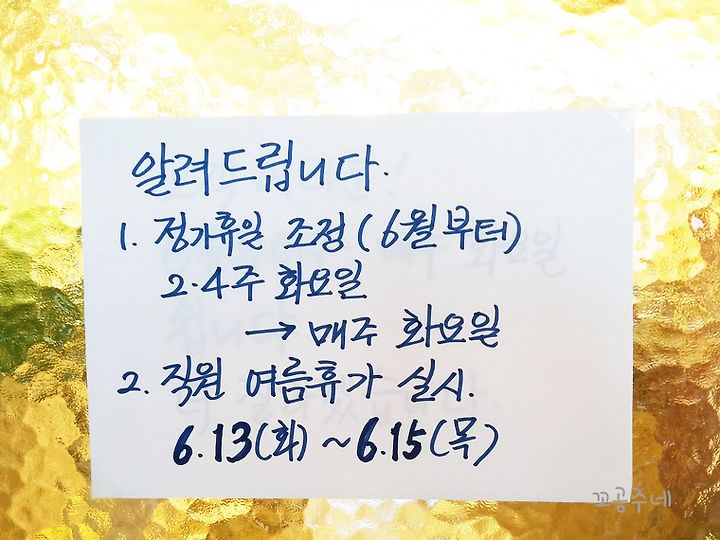 알려드립니다.
1. 정기휴일 조정 (6월부터)
2.4주 화요일
→ 매주 화요일
2. 직원 여름휴가 실시.
6.13(화) ~ 6.15(목)
꼬공주네